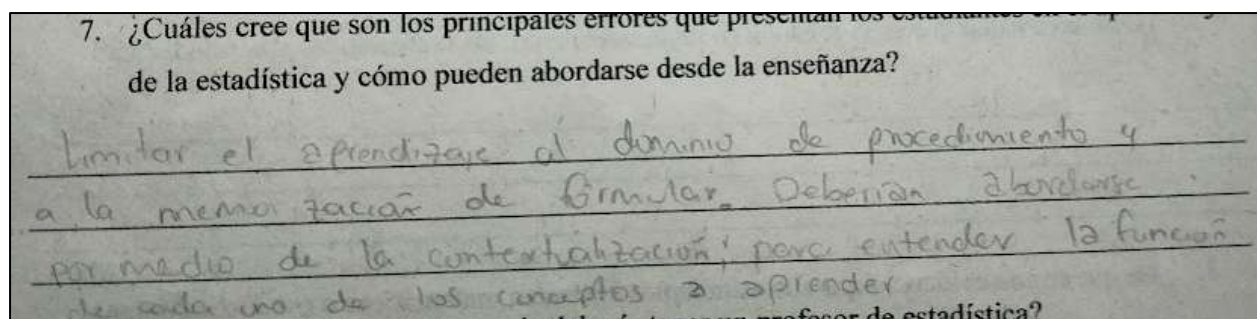 7. ¿Cuáles cree que son los principales errores que presentan los estudiantes
de la estadística y cómo pueden abordarse desde la enseñanza?
Limitar el aprendizaje al dominio de procedimiento y
a la memorización de formular. Deberían abordarse
por medio de la contextualización; para entender la función
de cada uno de los conceptos a aprender
profesor de estadística?